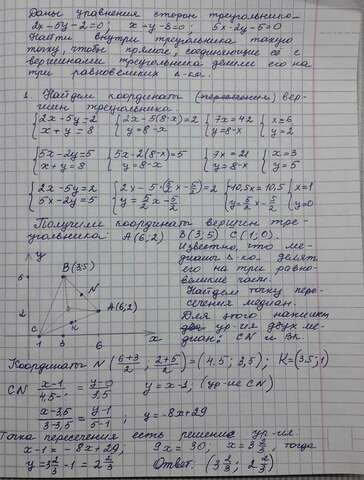 Даны уравнения сторон треугольника
2x - 5y - 2 = 0; x - y - 3 = 0; 5x - 2y - 5 = 0
Найти внутри треугольника такую
точку, чтобы прямые, соединяющие её с
вершинами треугольника делили его на
три равновеликих Δ-ка.
1. Найдем координаты вер-
шин треугольника.
{2x - 5y = 2 {2x - 5(8-x) = 2 {7x = 42 {x = 6
{x + y = 8 {y = 8-x {y = 8-x {y = 2
{5x - 2y = 5 {5x - 2(8-x) = 5 {7x = 21 {x = 3
{x + y = 8 {y = 8-x {y = 8-x {y = 5
{2x - 5y = 2 {2x - 5·(5/2x - 5/2) = 2 {-10,5x = 10,5 {x = 1
{5x - 2y = 5 {y = 5/2x - 5/2 {y = 5/2x - 5/2 {y = 0
Получили координаты вершин тре-
угольника: A(6;2) B(3;5) C(1;0).
Известно, что ме-
дианы Δ-ка делят
его на три равно-
великие части.
Найдем точку пере-
сечения медиан.
Для этого напишем
ур-ия двух ме-
диан: CN и BK.
y
B(3;5)
N
A(6;2)
K
C
x
5
2
1 3 6
Координаты N((6+3)/2; (2+5)/2) = (4,5; 3,5); K = (3,5; 1)
CN (x-1)/(4,5-1) = (y-0)/3,5 y = x-1, (ур-ие CN)
(x-3,5)/(3-3,5) = (y-1)/(5-1); y = -8x + 29
Точка пересечения есть решение ур-ия
x-1 = -8x + 29 9x = 30, x = 3 1/3, тогда
y = 3 1/3 - 1 = 2 1/3 Ответ. (3 1/3; 2 1/3)